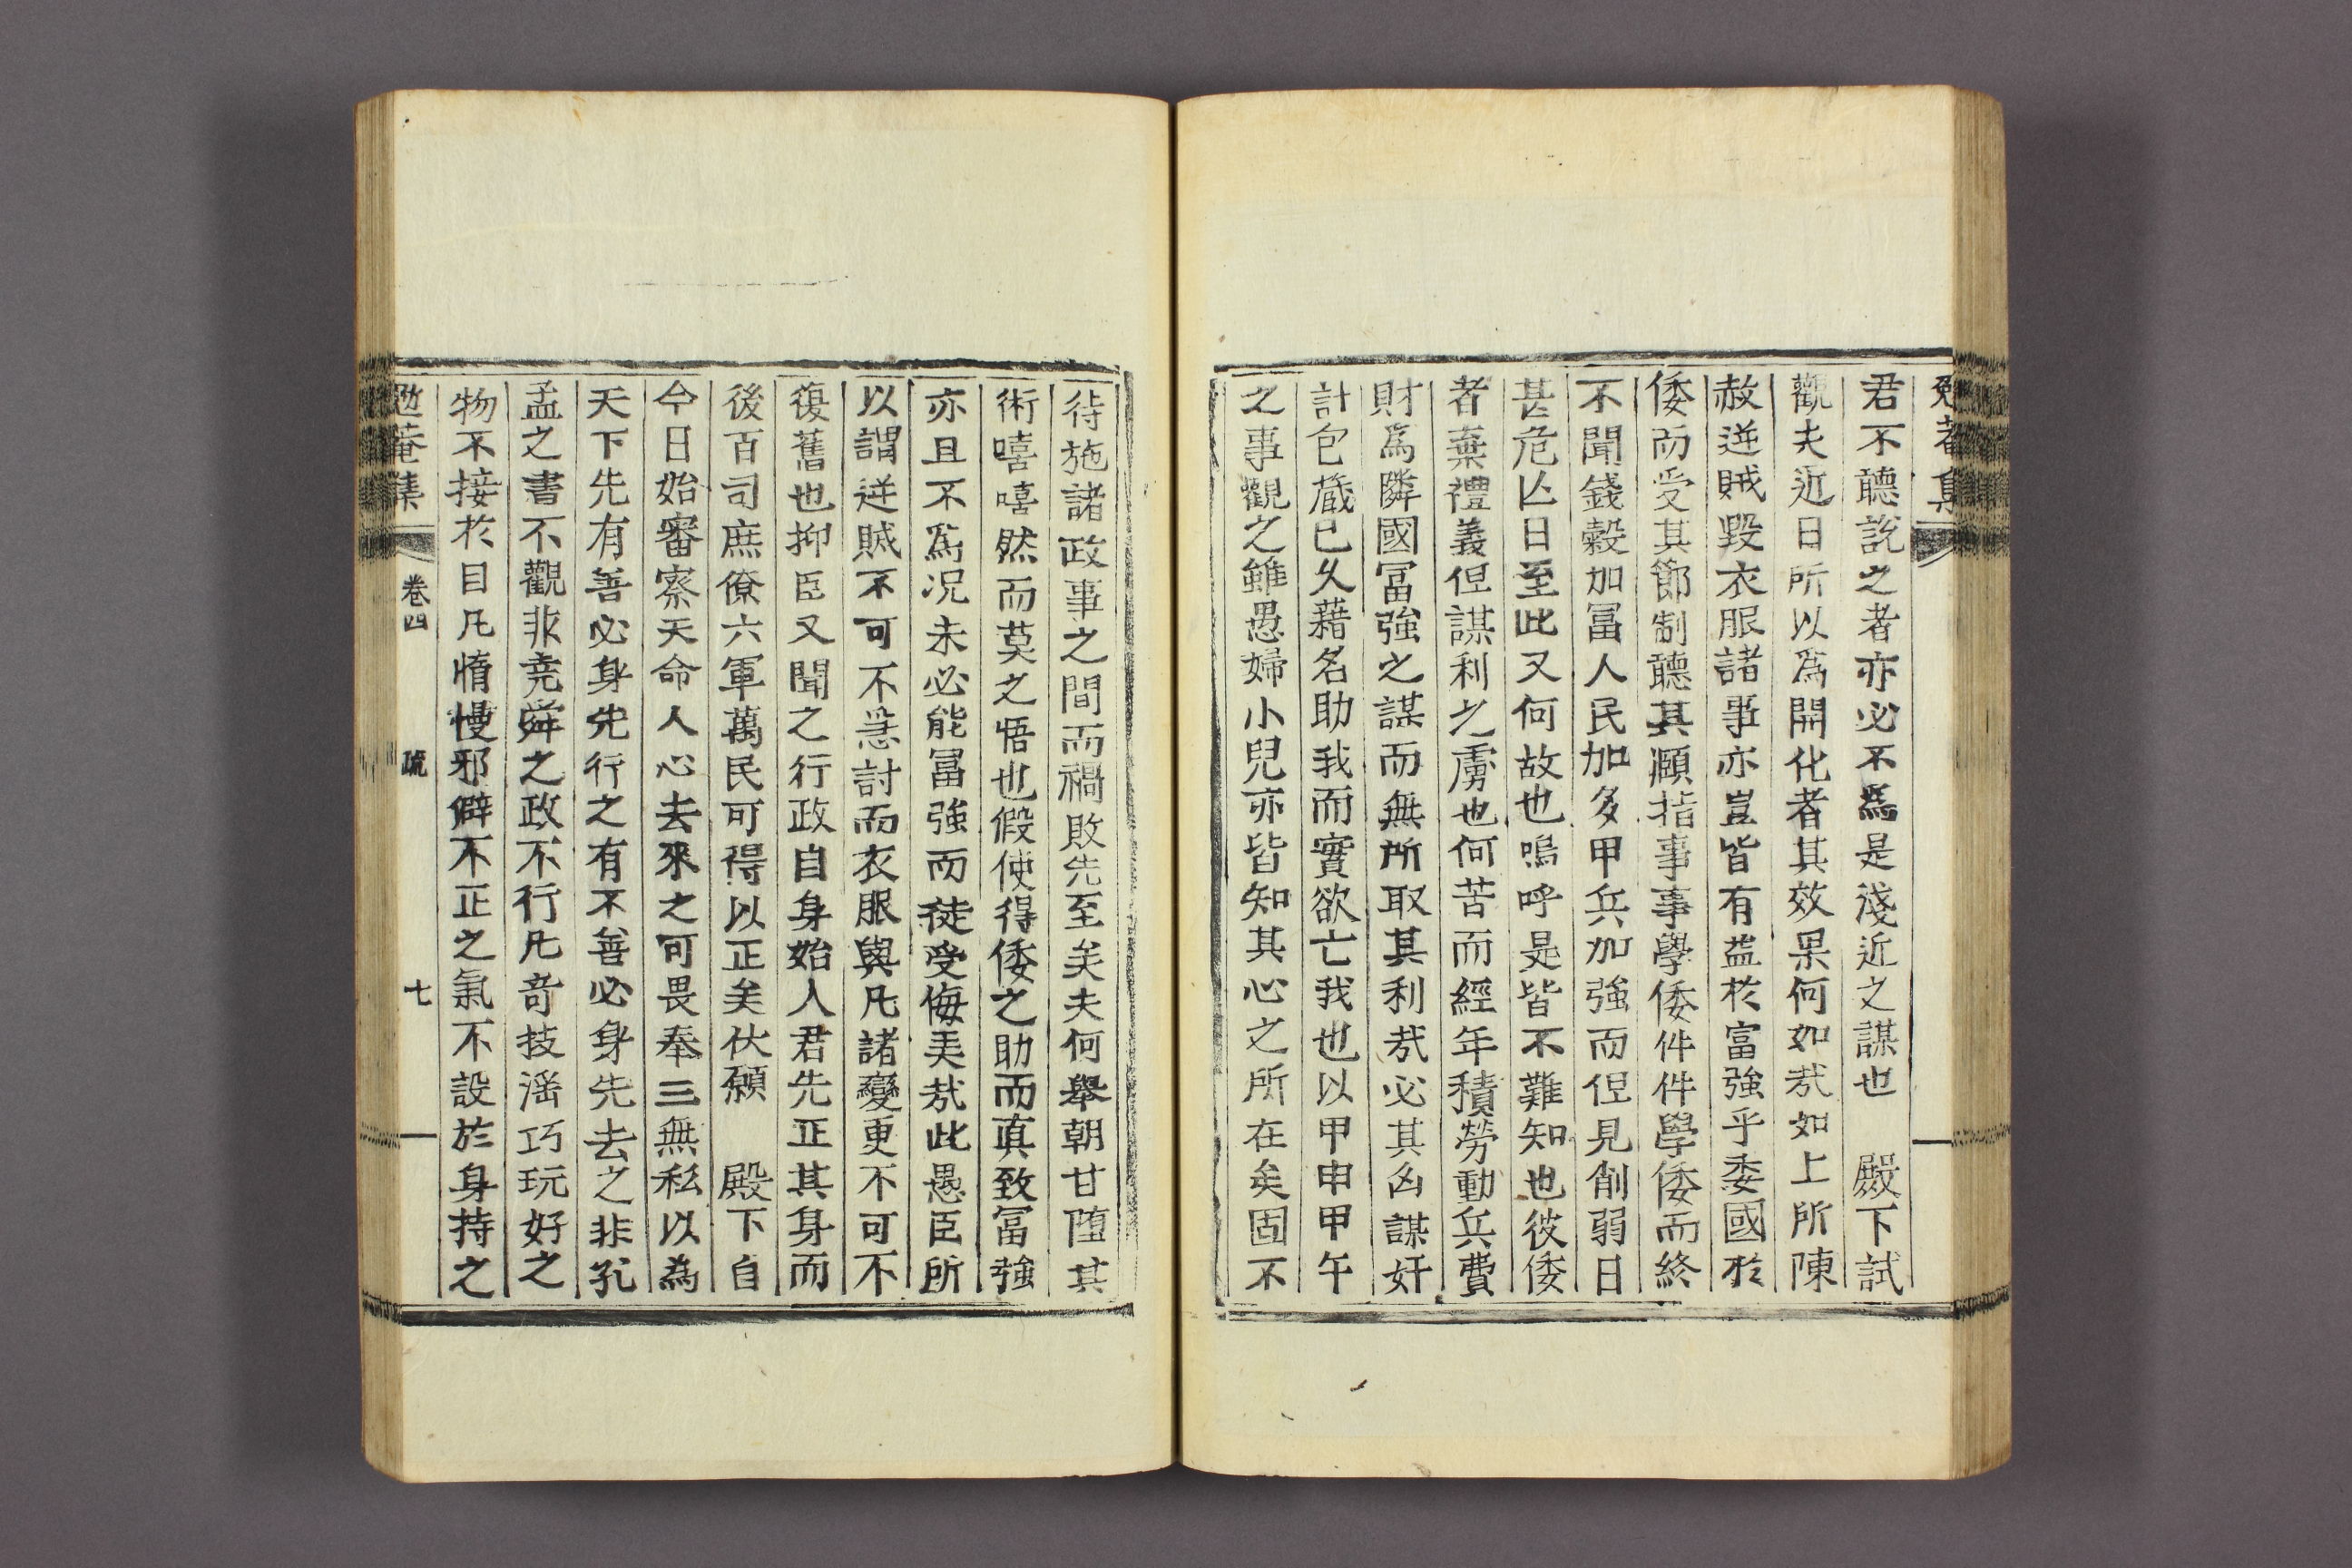 君不聽說之者亦必不爲是淺近之謀也　殿下試
觀夫近日所以爲開化者其效果何如㦲如上所陳
赦逆賊毀衣服諸事亦豈皆有益於富強乎委國於
倭而受其節制聽其頤指事事學倭件件學倭而終
不聞錢穀加冨人民加多甲兵加強而但見削弱日
甚危亡日至此又何故也嗚呼是皆不難知也彼倭
者棄禮義但謀利之虜也何苦而經年積勞動兵費
財爲隣國冨強之謀而無所取其利㦲必其凶謀奸
計包蔵已久藉名助我而實欲亡我也以甲申甲午
之事觀之雖愚婦小兒亦皆知其心之所在矣固不
待施諸政事之間而禍敗先至矣夫何舉朝甘墮其
術嘻嘻然而莫之悟也假使得倭之助而眞致冨強
亦且不爲况未必能冨強而徒受侮美㦲此愚臣所
以謂逆賊不可不急討而衣服與凡諸變更不可不
復舊也抑臣又聞之行政自身始人君先正其身而
後百司庶僚六軍萬民可得以正矣伏願　殿下自
今日始審察天命人心去來之可畏奉三無私以為
天下先有善必身先行之有不善必身先去之非孔
孟之書不觀非堯舜之政不行凡奇技淫巧玩好之
物不接於目凡惰慢邪僻不正之氣不設於身持之
勉菴集　卷四　疏　七